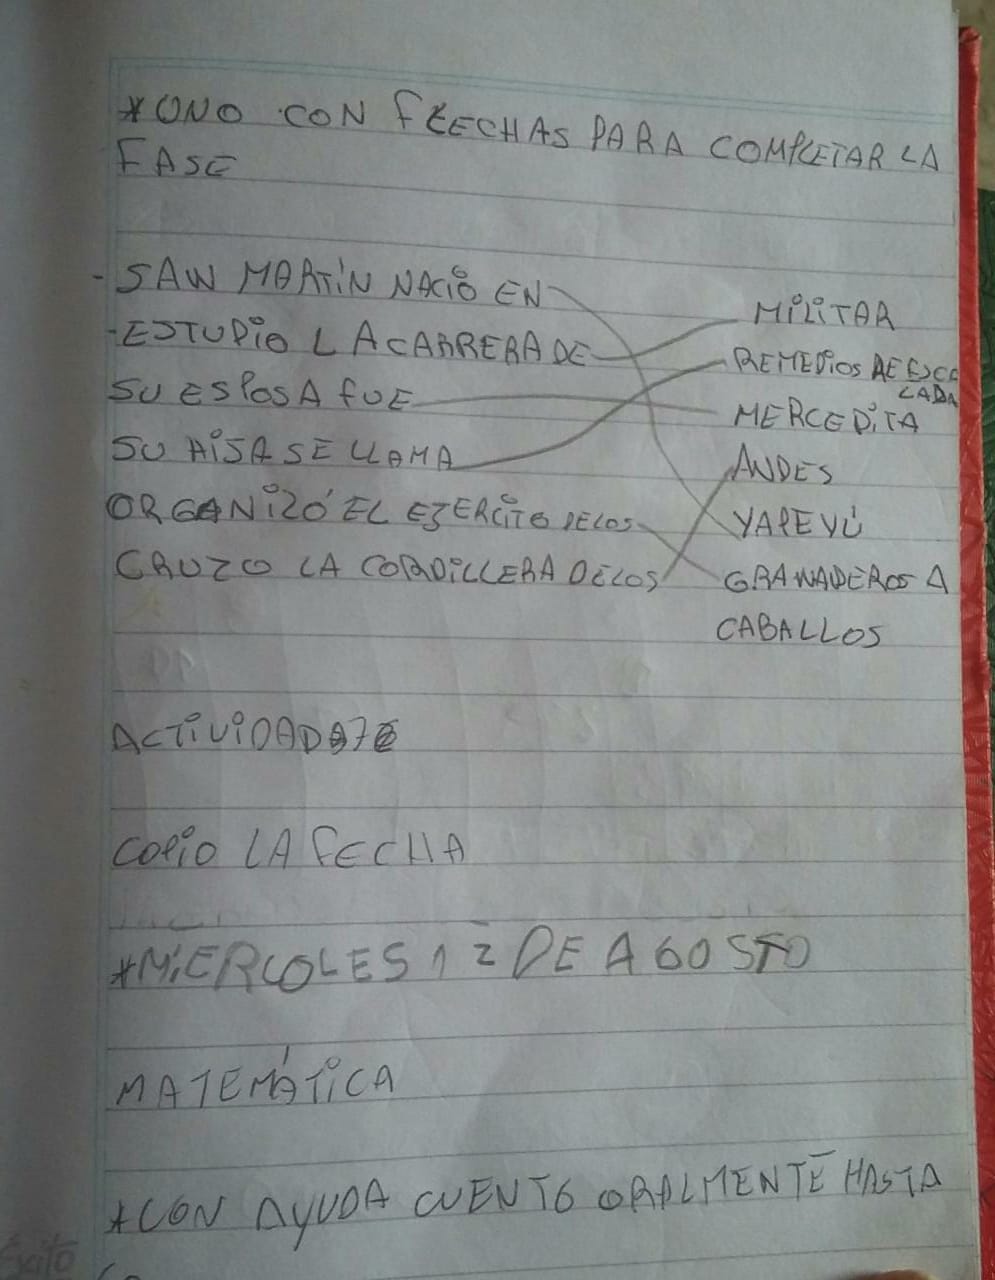 *UNO CON FLECHAS PARA COMPLETAR LA
FASE
- SAN MARTIN NACIO EN
MILITAR
- ESTUDIO LA CARRERA DE
REMEDIOS DE ESCA
LADA
SU ESPOSA FUE
MERCEDITA
SU HIJA SE LLAMA
ANDES
ORGANIZÓ EL EJERCITO DE LOS
YAPEYÚ
CRUZO LA CORDILLERA DE LOS
GRANADEROS A
CABALLOS
ACTIVIDAD 
COPIO LA FECHA
*MIERCOLES 12 DE AGOSTO
MATEMÁTICA
*CON AYUDA CUENTO ORALMENTE HASTA